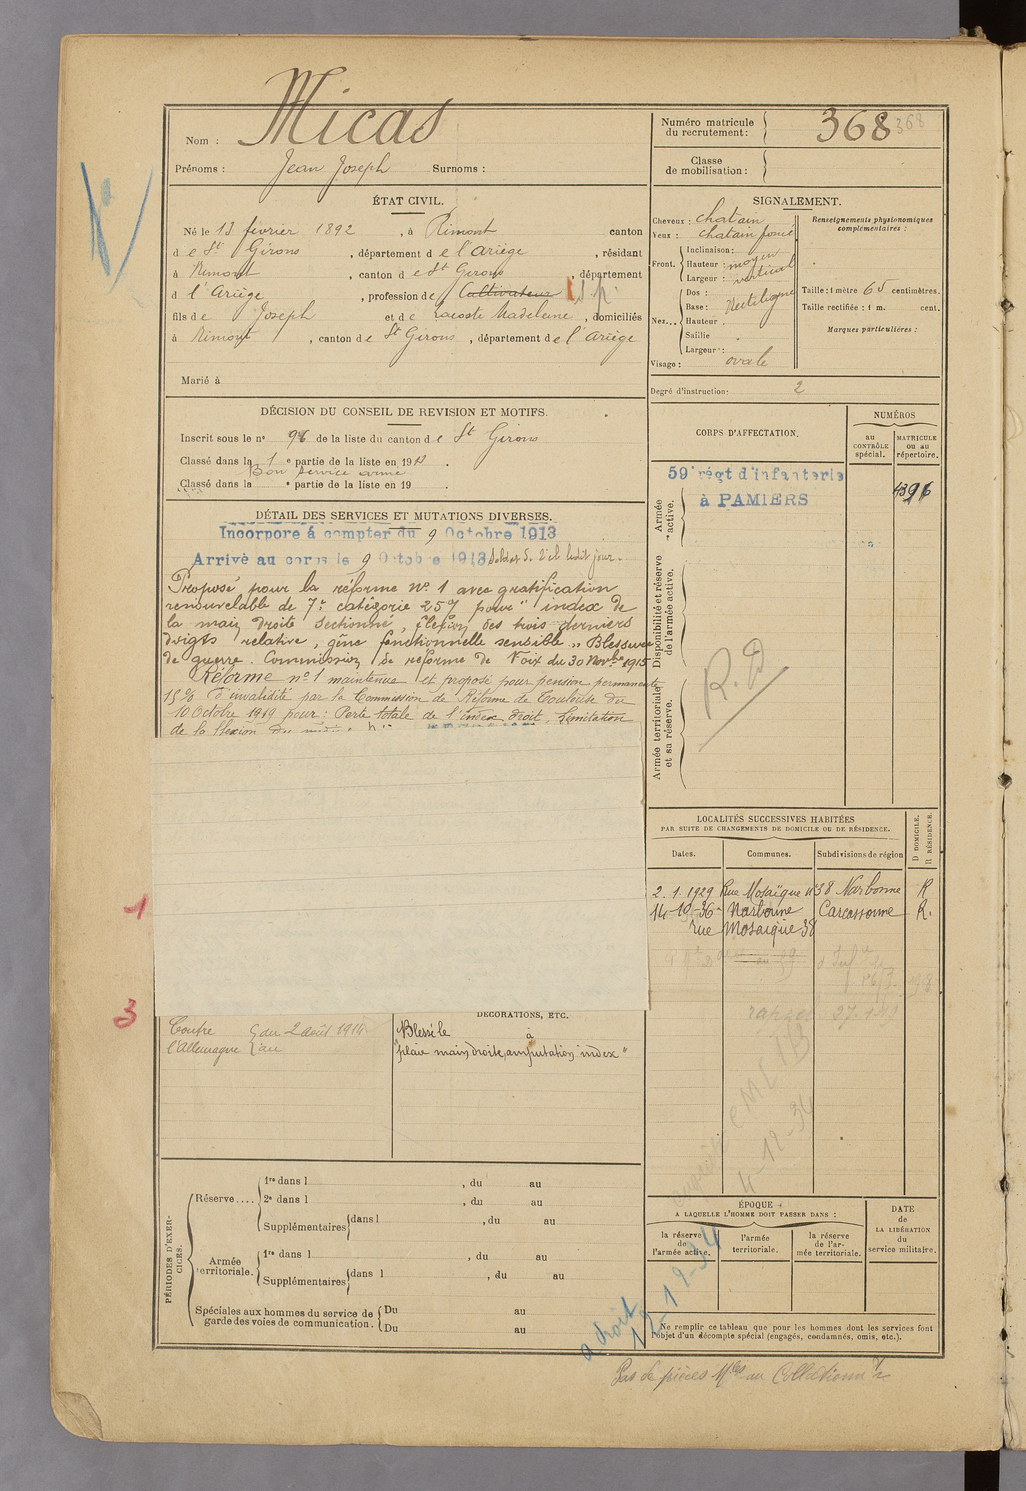 Nom : Micas
Prénoms : Jean Joseph Surnoms :
ÉTAT CIVIL.
Né le 13 février 1892, à Rimont canton
de St Girons, département de l'Ariège, résidant
à Rimont, canton de St Girons, département
d l'Ariège, profession de Cultivateur
fils de Joseph et de Lacoste Madeleine, domiciliés
à Rimont, canton de St Girons, département de l'Ariège
Marié à
DÉCISION DU CONSEIL DE REVISION ET MOTIFS.
Inscrit sous le no 96 de la liste du canton de St Girons
Classé dans la 1e partie de la liste en 1913.
Bon service armé
Classé dans la e partie de la liste en 19
DÉTAIL DES SERVICES ET MUTATIONS DIVERSES.
Incorporé à compter du 9 Octobre 1913
Arrivé au corps le 9 Octobre 1913 Soldat de 2e cl ledit jour.
Proposé pour la réforme no 1 avec gratification
renouvelable de 7e catégorie 25% pour " index de
la main droite sectionné, flexion des trois derniers
doigts relative, gêne fonctionnelle sensible " Blessure
de guerre. Commission de réforme de Foix du 30 Novbre 1915
Réforme no 1 maintenue et proposé pour pension permanente
15% d'invalidité par la Commission de Réforme de Toulouse du
10 Octobre 1919 pour : Perte totale de l'index droit, limitation
de la flexion du
1
3
Contre du 2 août 1914
l'Allemagne au
DÉCORATIONS, ETC.
Blessé le à
"plaie main droite, amputation index"
PÉRIODES D'EXERCICES.
Réserve....
1re dans l , du au
2e dans l , du au
Supplémentaires dans l , du au
Armée territoriale.
1re dans l , du au
Supplémentaires dans l , du au
Spéciales aux hommes du service de garde des voies de communication.
Du au
Du au
Numéro matricule du recrutement : 368 368
Classe de mobilisation :
SIGNALEMENT.
Cheveux : chatain
Yeux : chatain foncé
Front. Inclinaison :
Hauteur : moyen
Largeur : vertical
Nez... Dos :
Base : Rectiligne
Hauteur :
Saillie
Largeur :
Visage : ovale
Renseignements physionomiques complémentaires :
Taille : 1 mètre 65 centimètres.
Taille rectifiée : 1 m. cent.
Marques particulières :
Degré d'instruction : 2
CORPS D'AFFECTATION.
NUMÉROS
au CONTRÔLE spécial.
MATRICULE ou au répertoire.
Armée active.
59e régt d'infanterie
à PAMIERS
4396
Disponibilité et réserve de l'armée active.
Armée territoriale et sa réserve.
R.D
LOCALITÉS SUCCESSIVES HABITÉES
PAR SUITE DE CHANGEMENTS DE DOMICILE OU DE RÉSIDENCE.
Dates. Communes. Subdivisions de région D DOMICILE. R RÉSIDENCE.
2.1.1929 Rue Mosaïque No 38 Narbonne R
14-10-36 Narbonne Carcassonne R.
rue Mosaïque 38
4-12-34
ÉPOQUE
A LAQUELLE L'HOMME DOIT PASSER DANS :
la réserve de l'armée active.
l'armée territoriale.
la réserve de l'armée territoriale.
DATE de LA LIBÉRATION du service militaire.
a droit
Ne remplir ce tableau que pour les hommes dont les services font
l'objet d'un décompte spécial (engagés, condamnés, omis, etc.).
Pas de pièces Mles au Collationnt